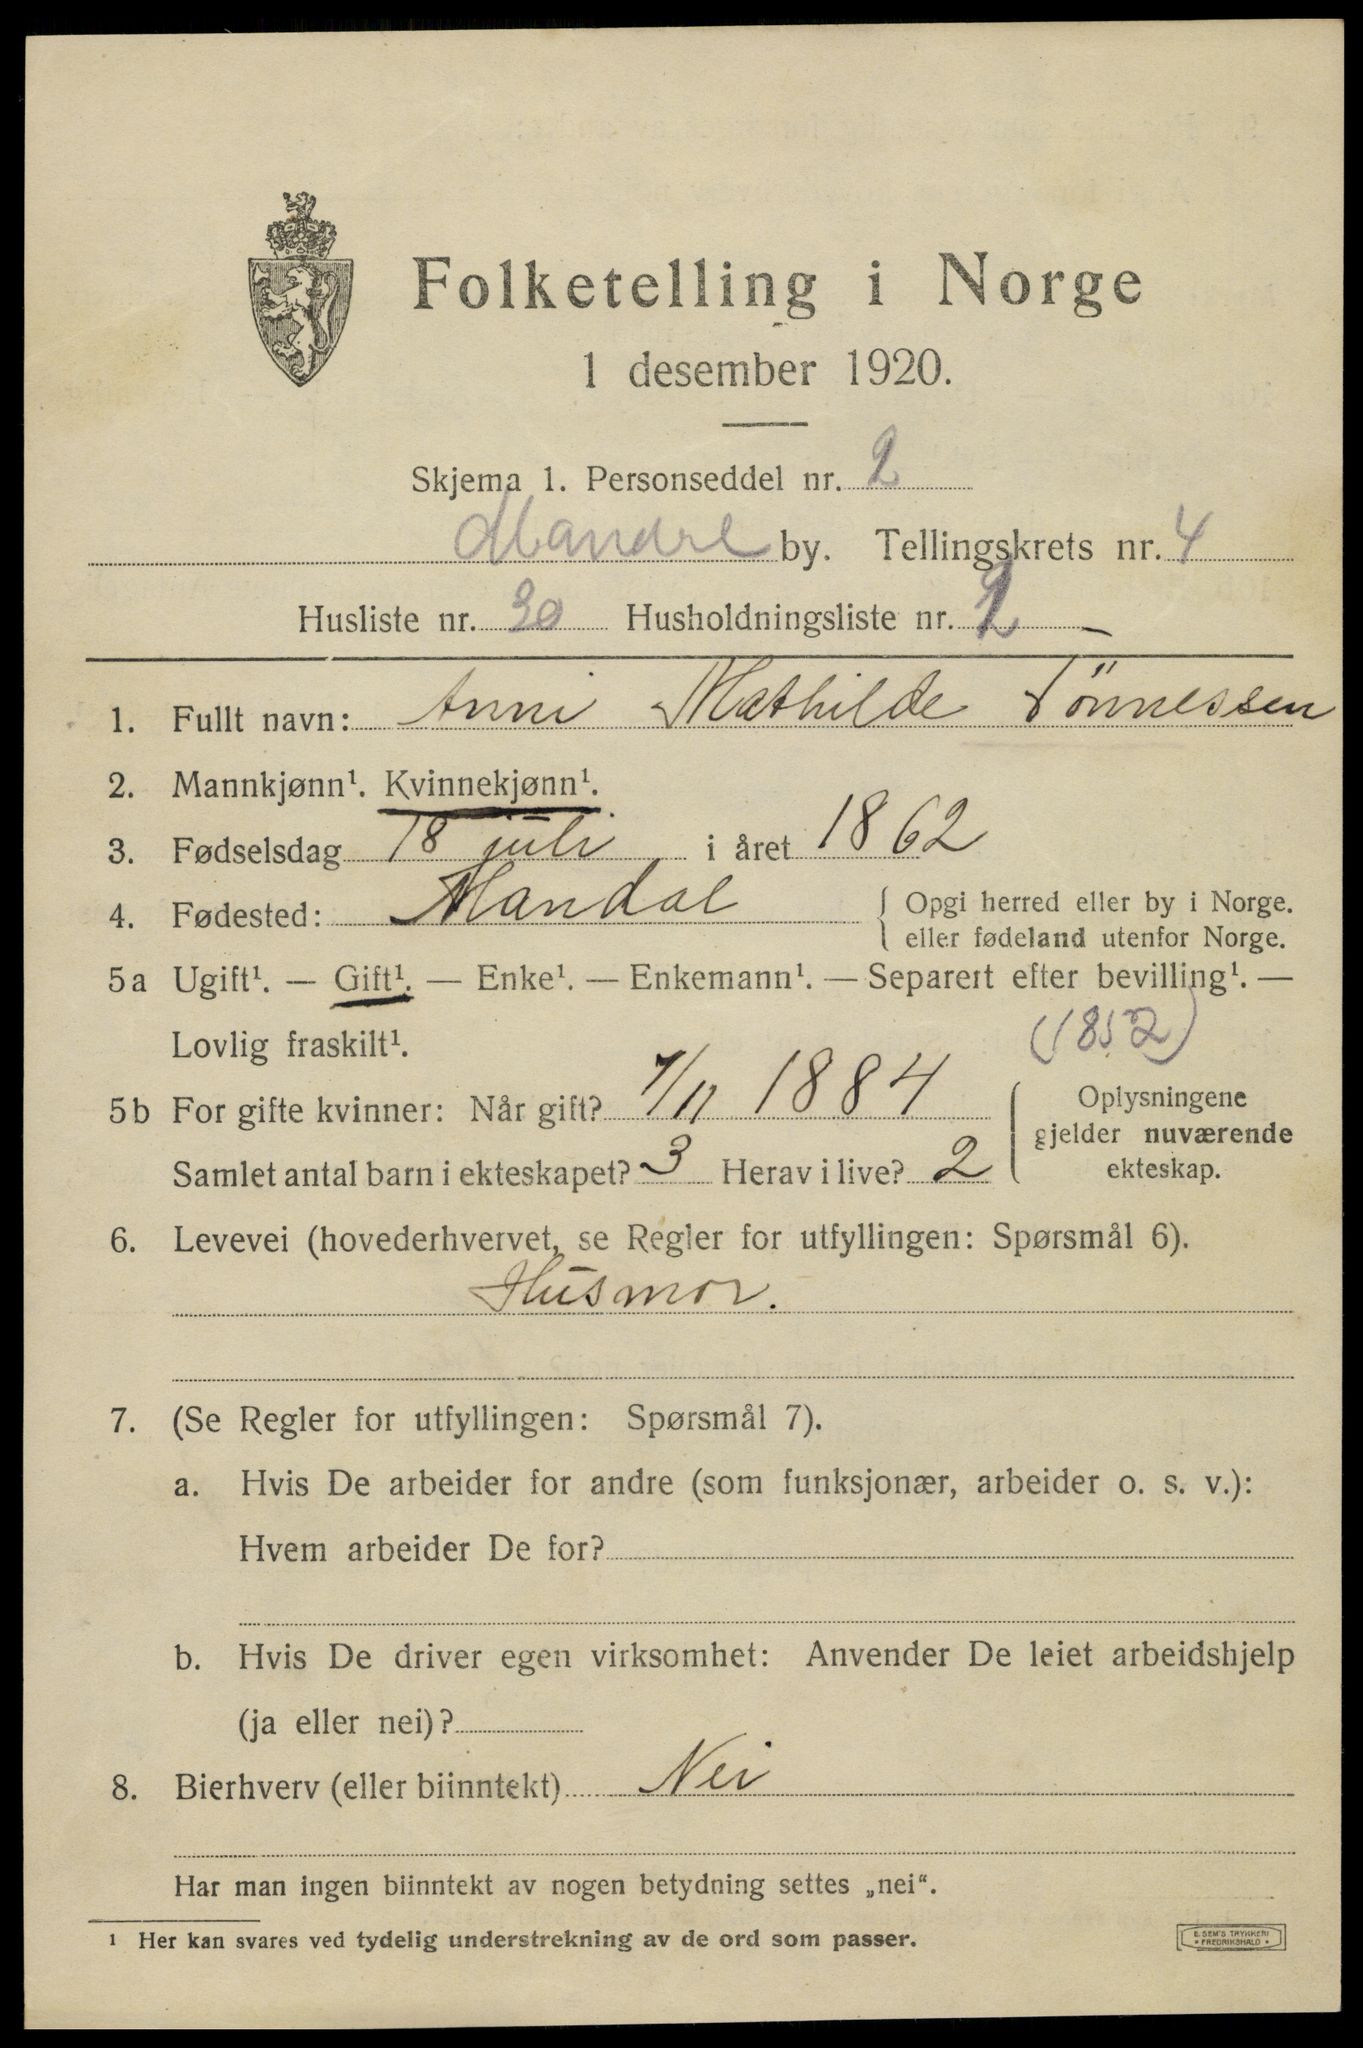 Folketelling i Norge
1 desember 1920.
Skjema 1. Personseddel nr. 2
Mandal by. Tellingskrets nr. 4
Husliste nr. 30 Husholdningsliste nr. 2
1. Fullt navn: Anni Mathilde Tönnessen
2. Mannkjønn¹. Kvinnekjønn¹.
3. Fødselsdag 18 juli i året 1862
4. Fødested: Mandal { Opgi herred eller by i Norge.
eller fødeland utenfor Norge.
5a Ugift¹. — Gift¹. — Enke¹. — Enkemann¹. — Separert efter bevilling¹. —
Lovlig fraskilt¹. (1852)
5b For gifte kvinner: Når gift? 7/11 1884 Oplysningene
gjelder nuværende
Samlet antal barn i ekteskapet? 3 Herav i live? 2 ekteskap.
6. Levevei (hovederhvervet, se Regler for utfyllingen: Spørsmål 6).
Husmor.
7. (Se Regler for utfyllingen: Spørsmål 7).
a. Hvis De arbeider for andre (som funksjonær, arbeider o. s. v.):
Hvem arbeider De for?
b. Hvis De driver egen virksomhet: Anvender De leiet arbeidshjelp
(ja eller nei)?
8. Bierhverv (eller biinntekt) Nei
Har man ingen biinntekt av nogen betydning settes „nei“.
¹ Her kan svares ved tydelig understrekning av de ord som passer.
E. SEM'S TRYKKERI
* FREDRIKSHALD *